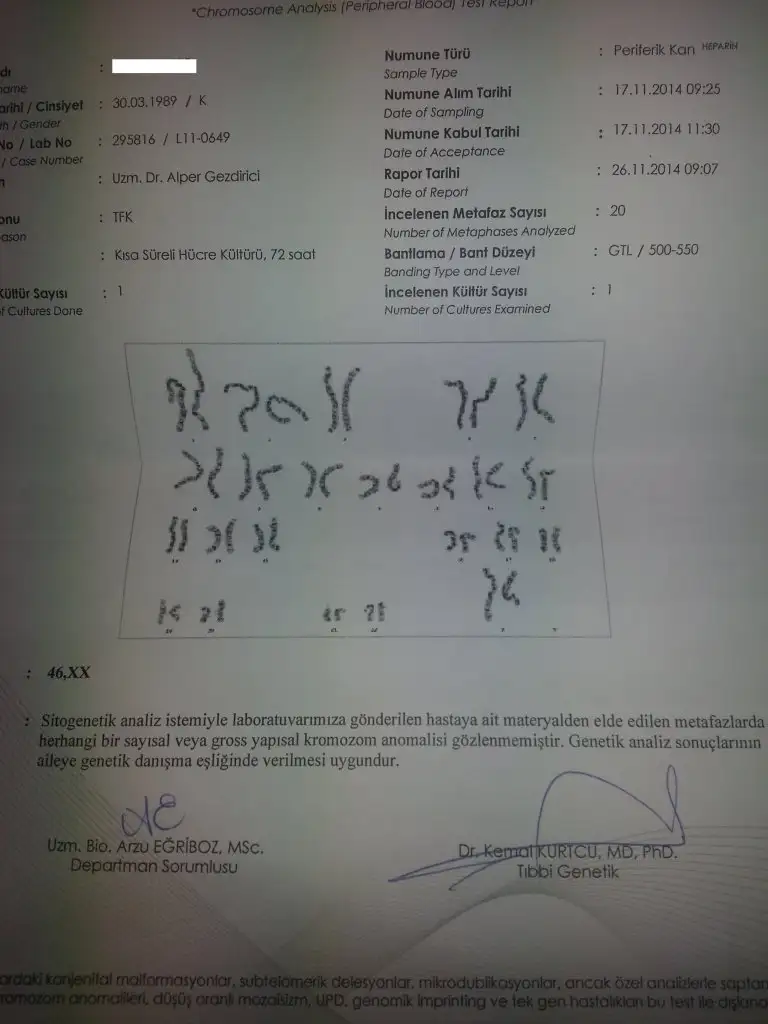 *Chromosome Analysis (Peripheral Blood) Test Report
Numune Türü : Periferik Kan HEPARİN
Sample Type
: 30.03.1989 / K
Numune Alım Tarihi : 17.11.2014 09:25
/ Gender
Date of Sampling
No / Lab No : 295816 / L11-0649
Numune Kabul Tarihi : 17.11.2014 11:30
/ Case Number
Date of Acceptance
: Uzm. Dr. Alper Gezdirici
Rapor Tarihi : 26.11.2014 09:07
Date of Report
: TFK
İncelenen Metafaz Sayısı : 20
Number of Metaphases Analyzed
: Kısa Süreli Hücre Kültürü, 72 saat
Bantlama / Bant Düzeyi : GTL / 500-550
Banding Type and Level
Kültür Sayısı : 1
İncelenen Kültür Sayısı : 1
of Cultures Done
Number of Cultures Examined
: 46,XX
: Sitogenetik analiz istemiyle laboratuvarımıza gönderilen hastaya ait materyalden elde edilen metafazlarda
herhangi bir sayısal veya gross yapısal kromozom anomalisi gözlenmemiştir. Genetik analiz sonuçlarının
aileye genetik danışma eşliğinde verilmesi uygundur.
Uzm. Bio. Arzu EĞRİBOZ, MSc.
Departman Sorumlusu
Dr. Kemal KURTCU, MD, PhD.
Tıbbi Genetik
konjenital malformasyonlar, subtelomerik delesyonlar, mikrodublikasyonlar, ancak özel analizlerle
anomalileri, düşüş oranlı mozaisizm, UPD, genomik imprinting ve tek gen hastalıkları bu test ile